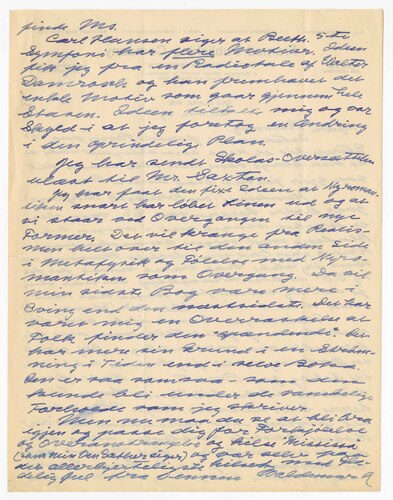 finde Ms.
Carl Hansen siger at Beeth. 5-te
Symfoni har flere Motiver. Ideen
fik jeg fra en Radiotale af Walter
Damrosch og han fremhævet det
enkle Motiv som gaar gjennem hele
Ideen mig og var
Skyld i at jeg foretog en Ændring
i den oprindelig Plan.
Jeg har sendt Skolas-Oversættelsen
ulæst til Mr. Saxtan.
Jeg har faaet den fixe Ideen at Nyroman-
tiken snart har løbet Linen ud og at
vi staar ved Overgangen til nye
Former. Det vil krænge fra Realis-
men helt over til den anden Side
i Metafysik og med Nyro-
mantiken som Overgang. Da vil
min sidste Bog være mere i
Sving end den næstsidste. Det har
været mig en Overraskelse at
Folk finder den "spændende". Det
har mer sin Grund i en Strøm-
ning i Tiden end i selve Boka.
Den er saa som saa - som den
kunde bli under de vanskelige
Forholde som jeg skriver.
Men nu maa du se at bli bra
igjen og passe dig for Forkjølelse
og Overanstrængelse og hils "Mississi"
(som min Den siger) og vær selv paa
det allerhjerteligste hilset med
fra Deres Waldemar